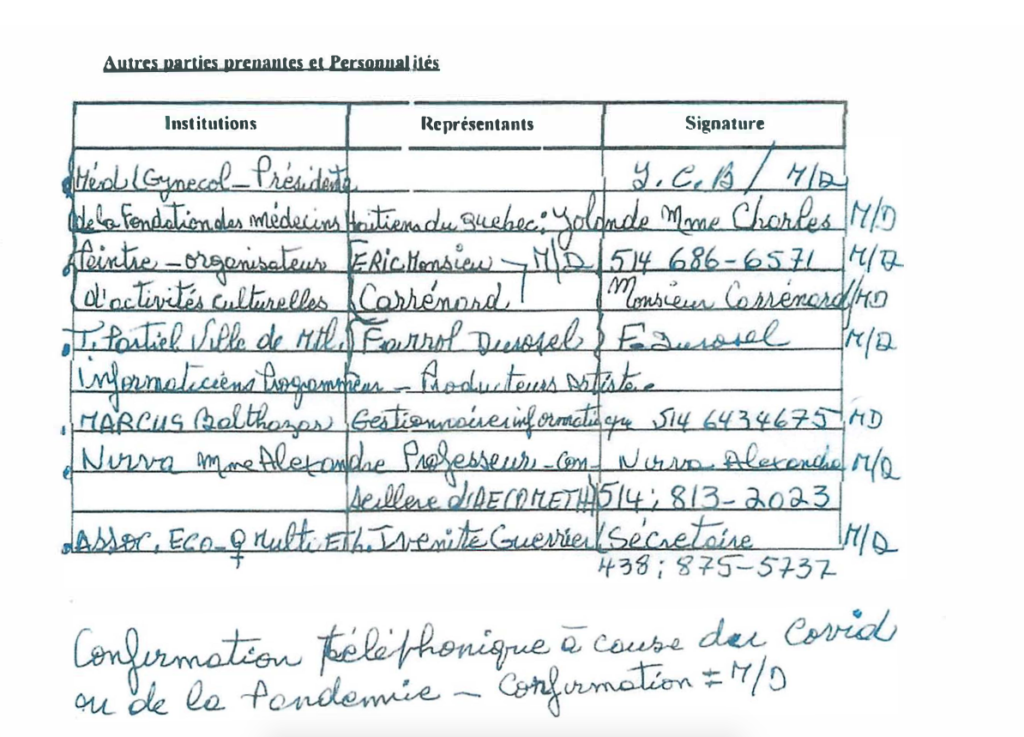 Autres parties prenantes et Personnalités
Institutions Représentants Signature
Méd/Gynecol – Présidente Y. C. B / M/D
de la Fondation des médecins Haitiens du Quebec: Yolande Mme Charles M/D
Peintre – organisateur ERIC Monsieur – M/D 514 686-6571 M/D
d'activités culturelles Carrénard Monsieur Carrénard/MD
T. Partiel Ville de Mtl. Farrol Durosel F. Durosel M/D
Informaticiens Programmeur – Producteurs Artiste.
MARCUS Balthazar Gestionnaire informatique 514 6434675 MD
Nirva Mme Alexandre Professeur – con- Nirva Alexandre M/D
seillere d'AECOMETH 514; 813-2023
Assoc. ECO-♀ Multi Eth. Ivenite Guerrier (Sécretaire M/D
438; 875-5737
Confirmation téléphonique à cause du Covid
ou de la Pandemie – Confirmation = M/D